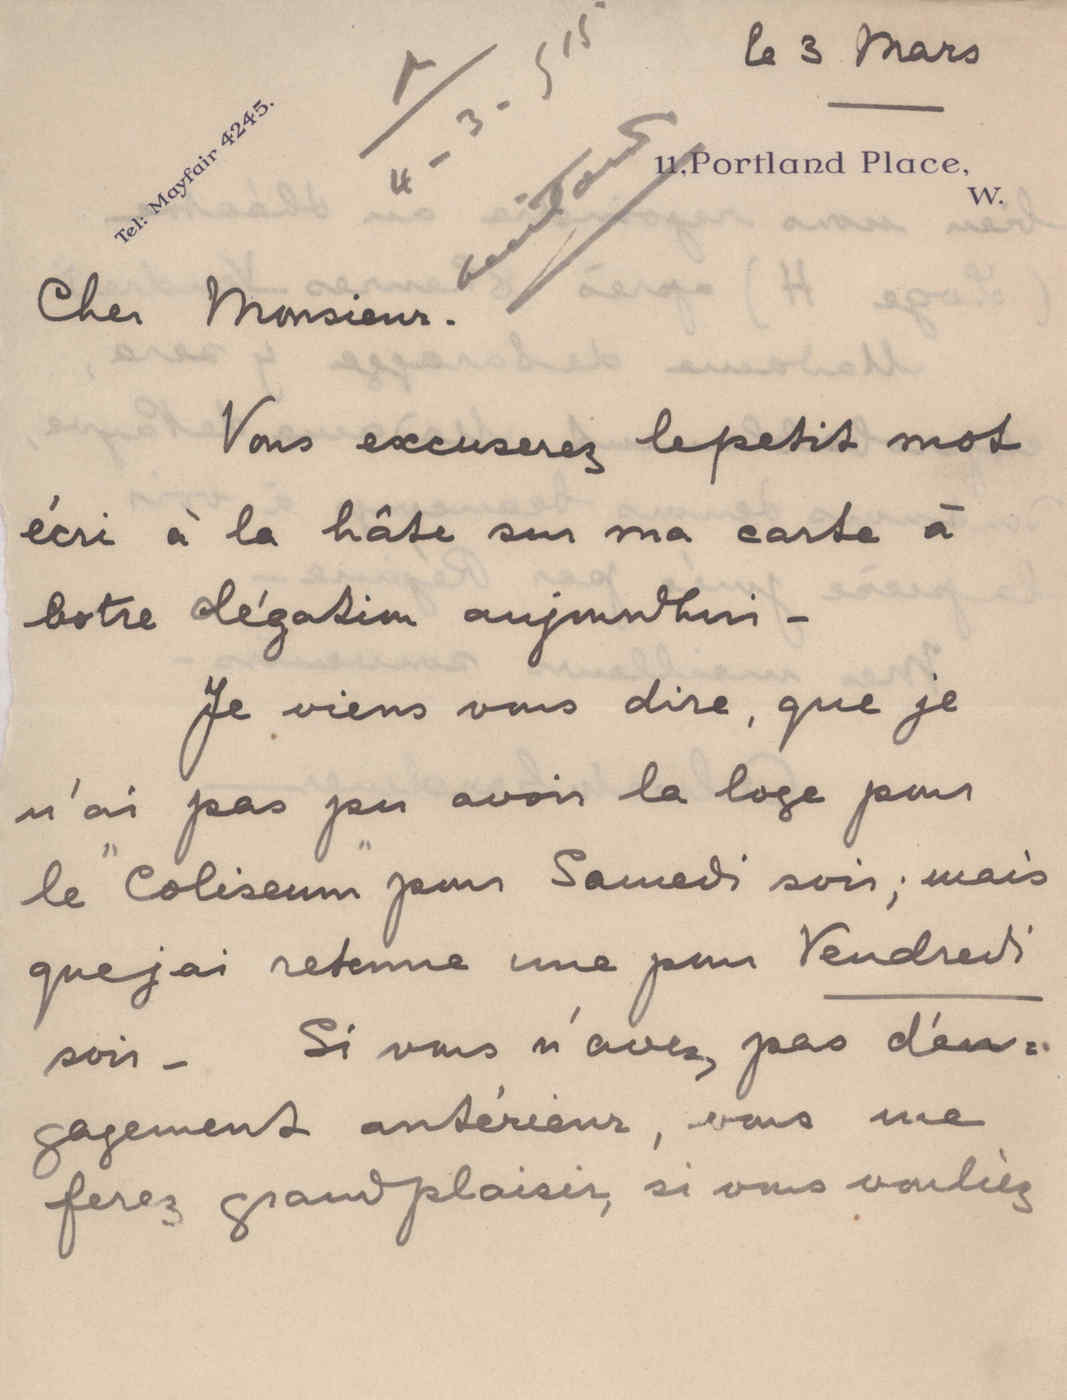 le 3 Mars
Tel: Mayfair 4245.
4-3-915
11, Portland Place,
W.
Cher Monsieur.
Vous excuserez le petit mot
écri à la hâte sur ma carte à
votre Légation aujourdhui -
Je viens vous dire, que je
n'ai pas pu avoir la loge pour
le "Coliseum" pour Samedi soir; mais
que jai retenue une pour Vendredi
soir - Si vous n'avez, pas d'en=
gagement antérieur, vous me
ferez grand plaisir, si vous vouliez